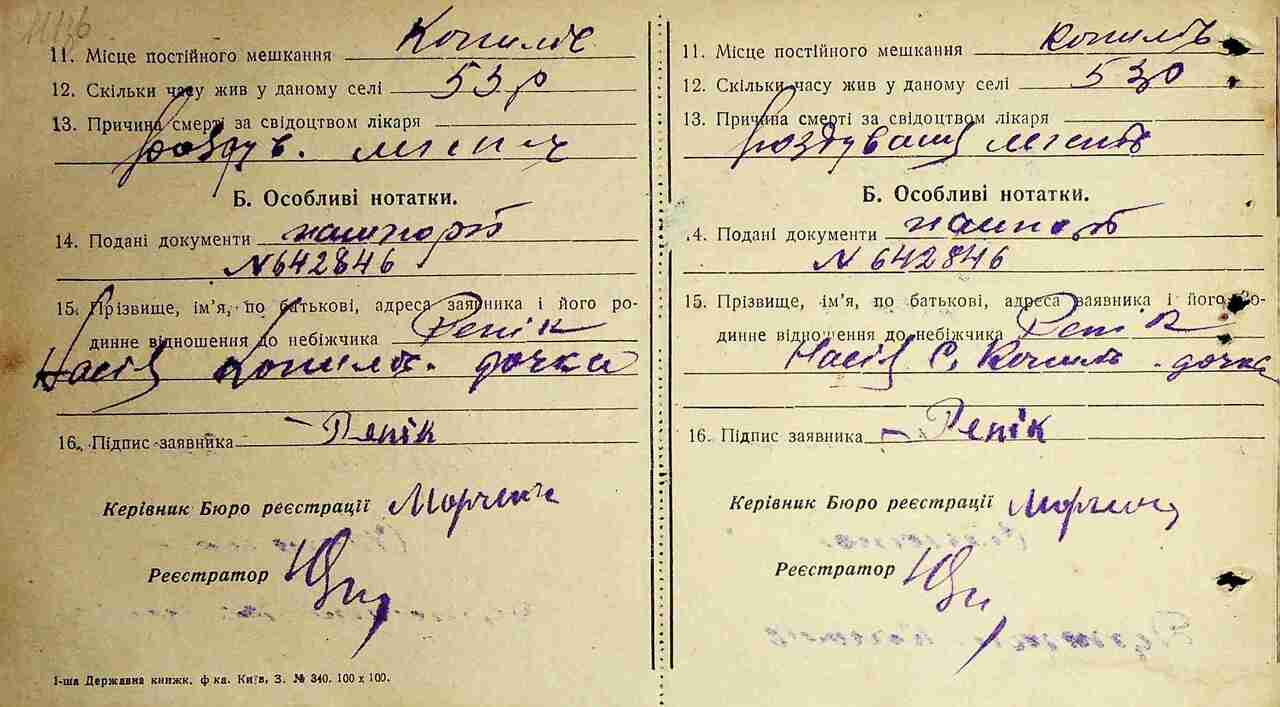 11. Місце постійного мешкання Копили
12. Скільки часу жив у даному селі 53 р
13. Причина смерті за свідоцтвом лікаря
Роздув. легких
Б. Особливі нотатки.
14. Подані документи пашпорт
N 642846
15. Прізвище, ім'я, по батькові, адреса заявника і його ро-
динне відношення до небіжчика Репік
Копили. дочка
16. Підпис заявника – Репік
Керівник Бюро реєстрації
Реєстратор
1-ша Державна книжк. ф-ка. Київ, З. № 340. 100 x 100.
11. Місце постійного мешкання Копили
12. Скільки часу жив у даному селі 53 р
13. Причина смерті за свідоцтвом лікаря
Роздування легень
Б. Особливі нотатки.
.4. Подані документи пашпорт
N 642846
15. Прізвище, ім'я, по батькові, адреса заявника і його ро-
динне відношення до небіжчика Репік
С. Копили - дочка
16. Підпис заявника – Репік
Керівник Бюро реєстрації
Реєстратор